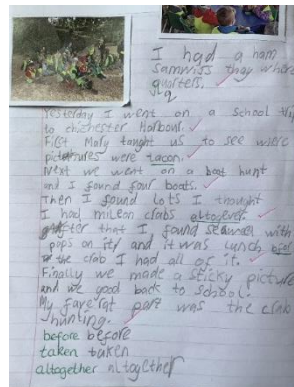 I had a ham
samwiss they where
quorters.
q
Yesterday I went on a school trip
to chichester Harbour.
First Mary taught us to see were
pictures were tacon.
Next we went on a boat hunt
and I found four boats.
Then I found lots I thought
I had mileon crabs altogever.
after that I found seaweed with
pops on it and it was lunch
the crab I had all of it.
Finally we made a sticky picture
and we good back to school.
My faverat part was the crab
hunting.
before before
taken taken
altogether altogether